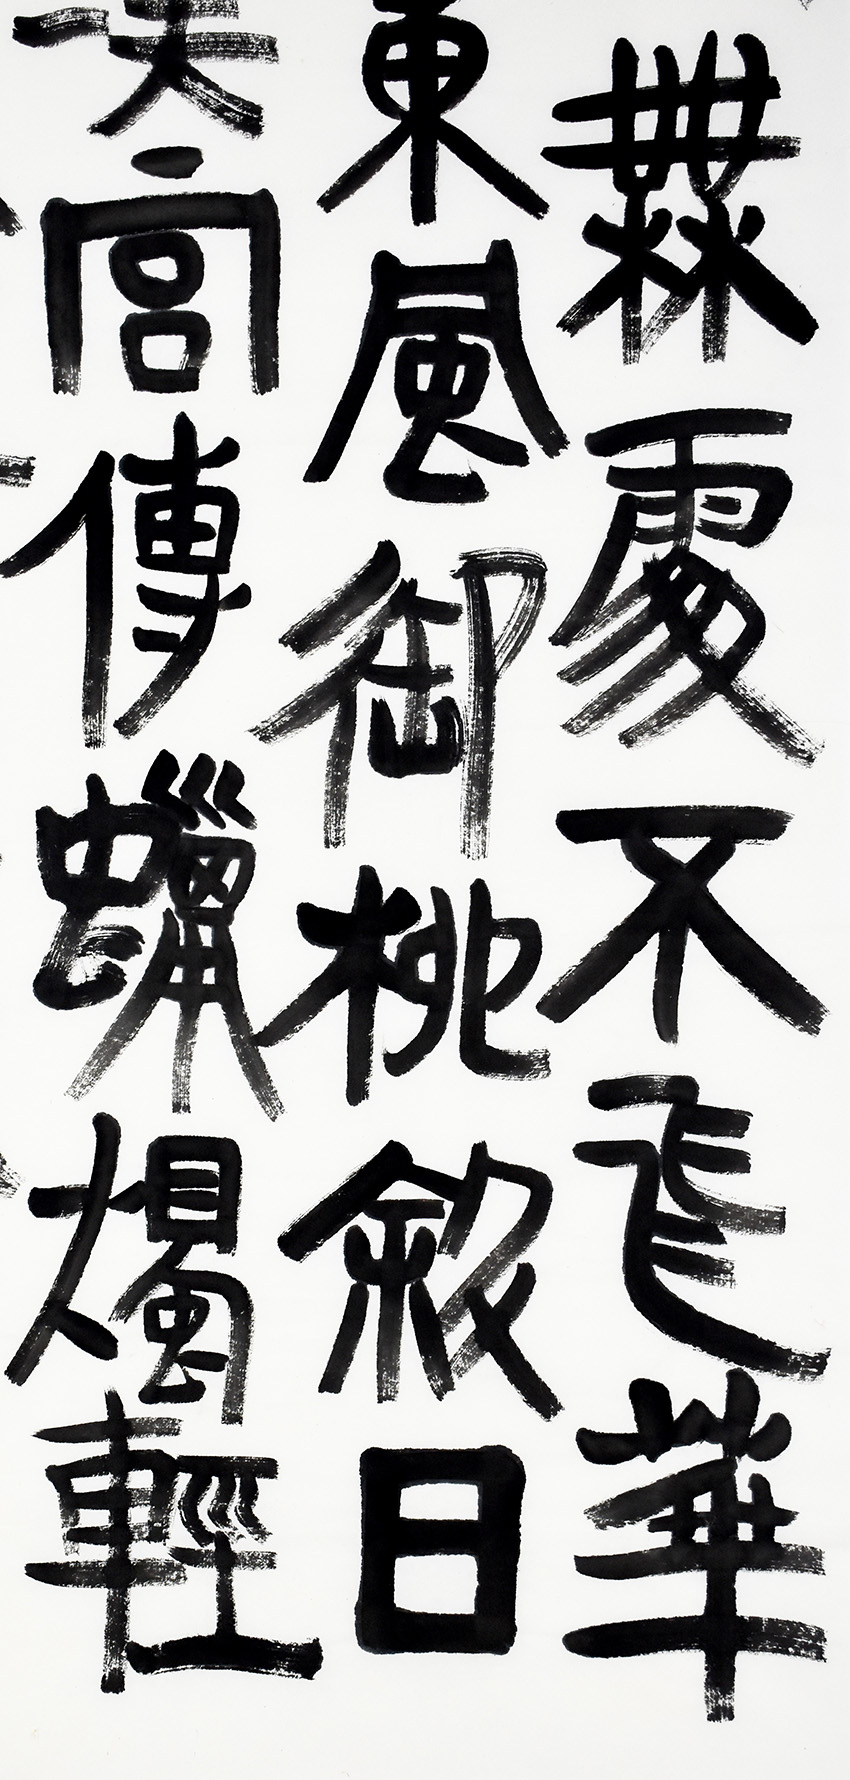 無處不飛華
東風御柳斜日
漢宮傳蠟燭輕